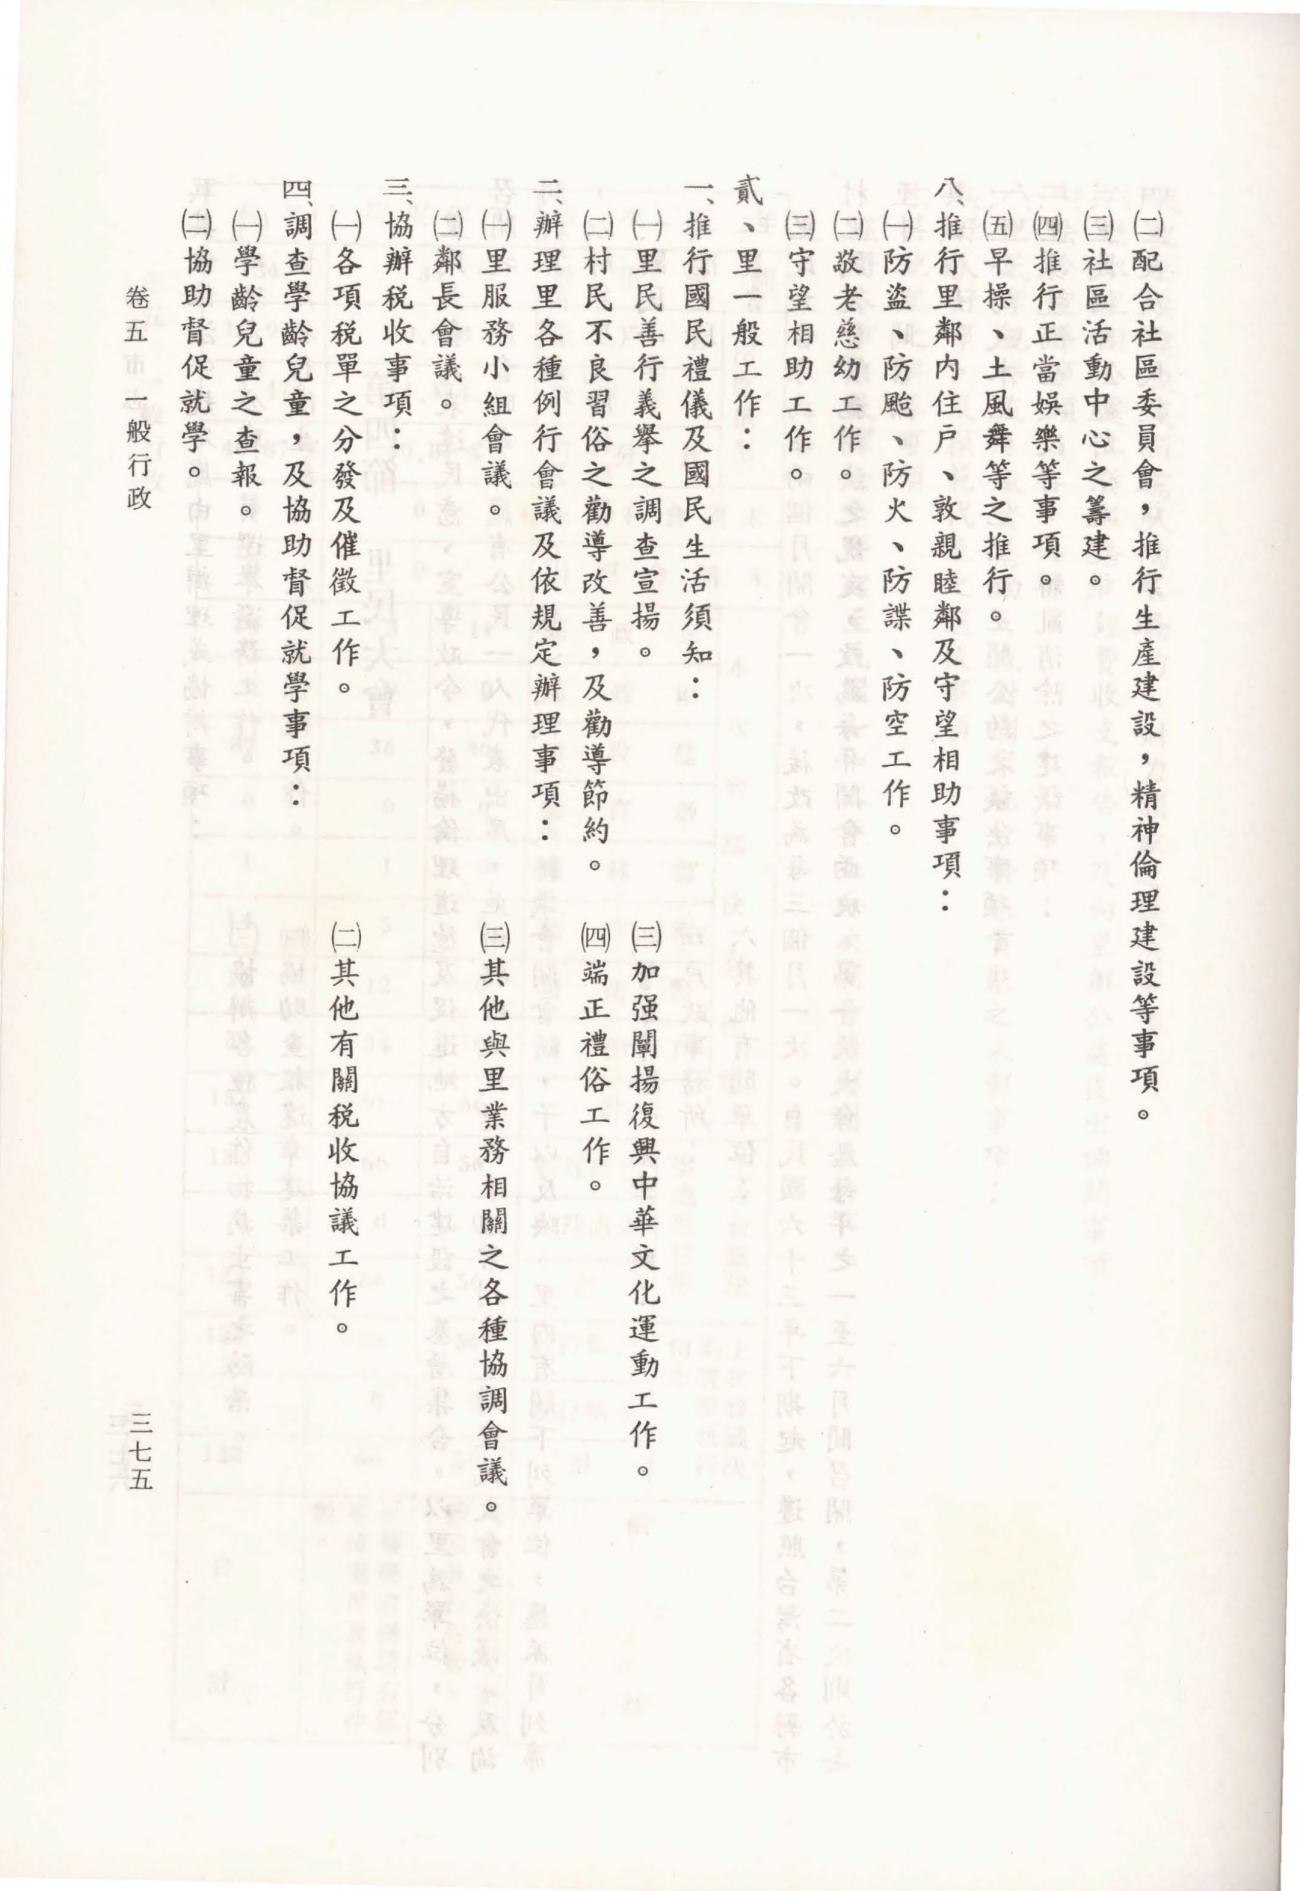 ㈡配合社區委員會，推行生產建設，精神倫理建設等事項。
㈢社區活動中心之籌建。
㈣推行正當娛樂等事項。
㈤早操、土風舞等之推行。
八、推行里鄰內住戶、敦親睦鄰及守望相助事項：
㈠防盜、防颱、防火、防諜、防空工作。
㈡敬老慈幼工作。
㈢守望相助工作。
貳、里一般工作：
一、推行國民禮儀及國民生活須知：
㈠里民善行義舉之調查宣揚。　㈢加强闡揚復興中華文化運動工作。
㈡村民不良習俗之勸導改善，及勸導節約。　㈣端正禮俗工作。
二、辦理里各種例行會議及依規定辦理事項：
㈠里服務小組會議。　㈢其他與里業務相關之各種協調會議。
㈡鄰長會議。
三、協辦稅收事項：
㈠各項稅單之分發及催徵工作。　㈡其他有關稅收協議工作。
四、調查學齡兒童，及協助督促就學事項：
㈠學齡兒童之查報。
㈡協助督促就學。
卷五　一般行政
三七五